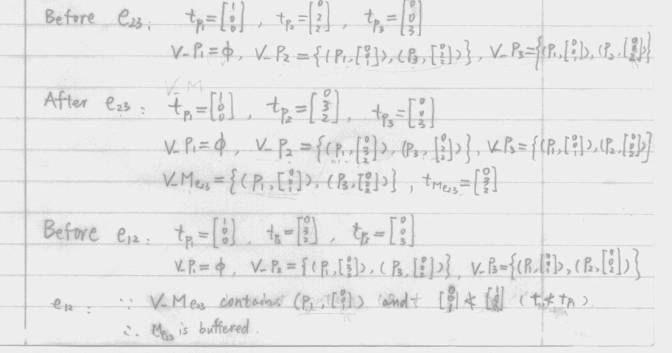 Before e₂₃: t_P₁=[1 0 0], t_P₂=[0 2 2], t_P₃=[0 0 3]
V_P₁=ϕ, V_P₂={(P₁,[]),(P₃,[])}, V_P₃={(P₁,[0 0 1]),(P₂,[])}
After e₂₃: t_P₁=[1 0 0], t_P₂=[0 3 2], t_P₃=[0 0 3]
V_P₁=ϕ, V_P₂={(P₁,[]),(P₃,[])}, V_P₃={(P₁,[0 0 1]),(P₂,[])}
V_Me₂₃={(P₁,[0 0 1]),(P₃,[])}, t_Me₂₃=[0 3 2]
Before e₁₂: t_P₁=[1 0 0], t_P₂=[0 3 2], t_P₃=[0 0 3]
V_P₁=ϕ, V_P₂={(P₁,[]),(P₃,[])}, V_P₃={(P₁,[]),(P₂,[])}
e₁₂: ∵ V_Me₂₃ contains (P₁,[0 0 1]) and [0 0 1] ≮ [1 0 0] (t ≮ t_P₁)
∴ M_e₂₃ is buffered.